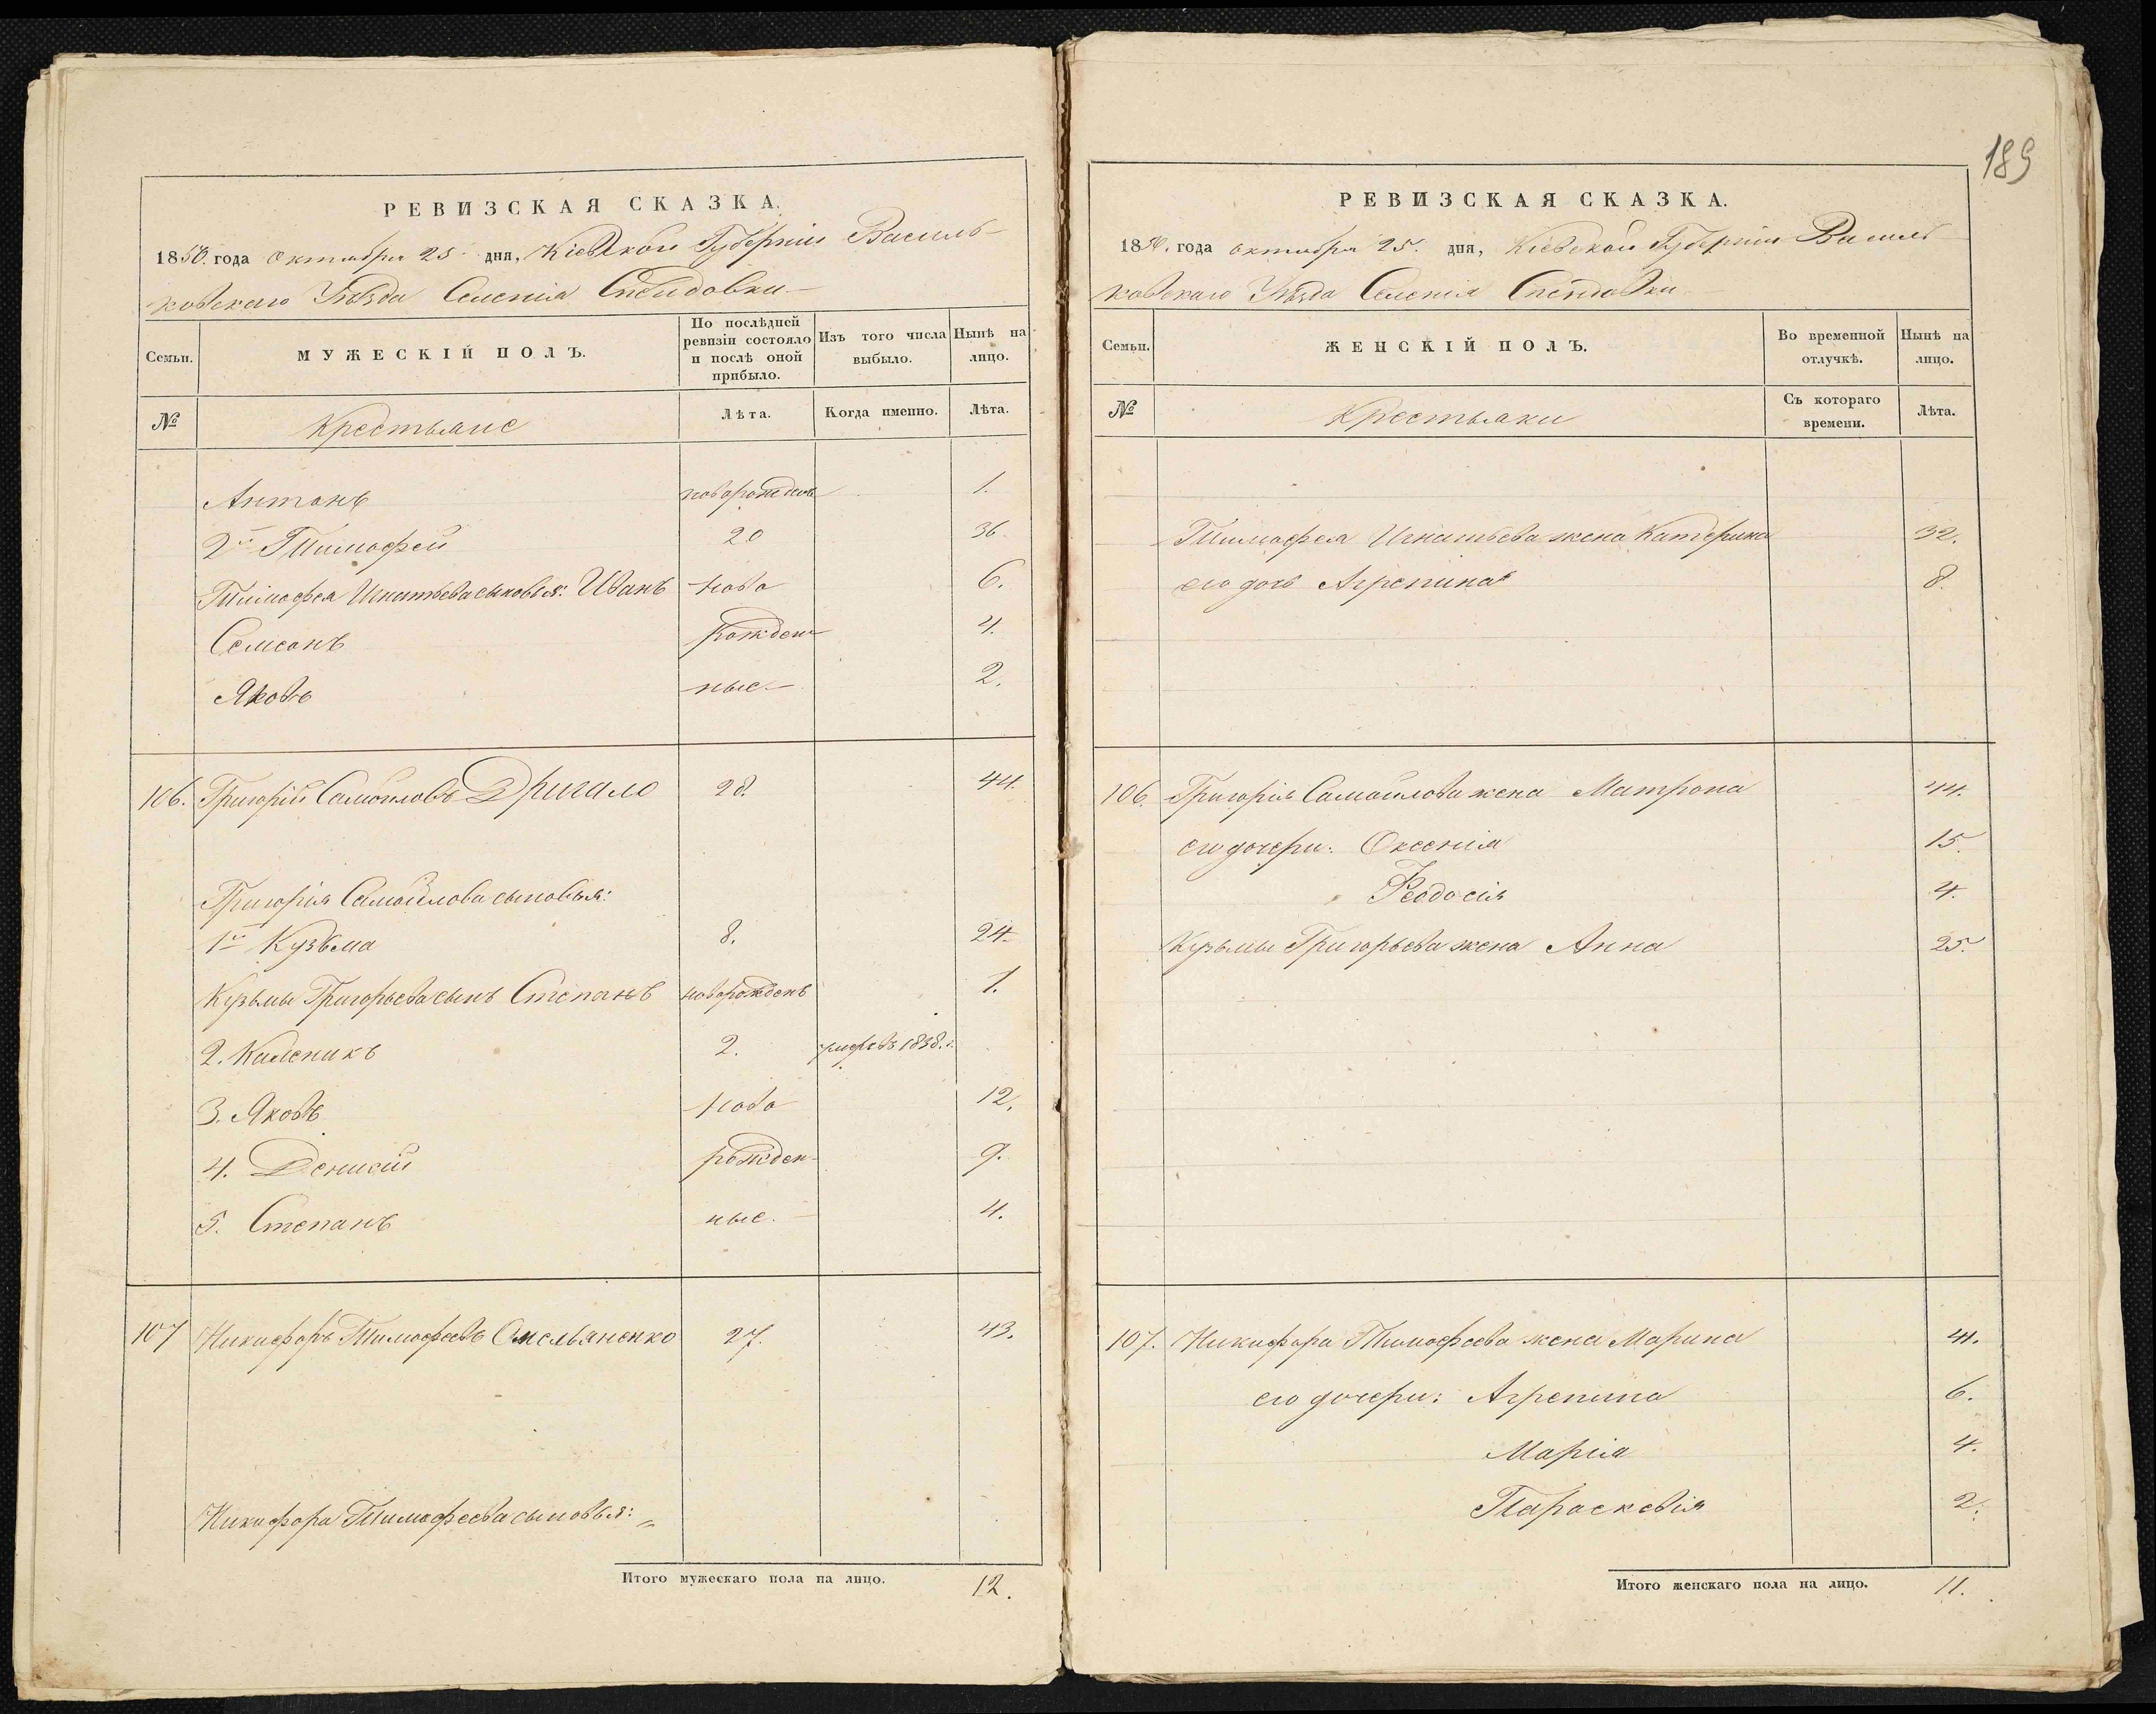 РЕВИЗСКАЯ СКАЗКА.
1850. года октября 25 дня, Кіевской Губерніи Василь-
ковскаго Уѣзда Селенія
Семьи.
МУЖЕСКІЙ ПОЛЪ.
По послѣдней ревизіи состояло и послѣ оной прибыло.
Изъ того числа выбыло.
Нынѣ на лицо.
№
Крестьяне
Лѣта.
Когда именно.
Лѣта.
Антонъ новорожденъ 1.
2й Тимофей 20 36
Тимофея Игнатьева сыновья: Иванъ ново 6.
Семионъ рожден 4.
Яковъ ные 2.
106. Григорій Самойловъ Дригало 28. 44.
Григорія Самойлова сыновья:
1й Кузьма 8. 24.
Кузьмы Григорьева сынъ Степанъ новорожденъ 1.
2. Каленикъ 2. 1838.
3. Яковъ ново 12.
4. рожден 9.
5. Степанъ ные. 4.
107 Никифоръ Тимофеевъ Омельяненко 27. 43.
Никифора Тимофеева сыновья:
Итого мужескаго пола на лицо. 12.
189
РЕВИЗСКАЯ СКАЗКА.
1850. года октября 25. дня, Кіевской Губерніи Василь
ковскаго Уѣзда Селенія
Семьи.
ЖЕНСКІЙ ПОЛЪ.
Во временной отлучкѣ.
Нынѣ на лицо.
№
Крестьянки
Съ котораго времени.
Лѣта.
Тимофея Игнатьева жена Катерина 32.
его дочь Агрепина 8.
106. Григорія Самойлова жена Матрона 44.
его дочери: Оксенія 15.
Феодосія 4.
Кузьмы Григорьева жена Анна 25.
107. Никифора Тимофеева жена Марина 41.
его дочери: Агрепина 6.
Марія 4.
Параскевія 2.
Итого женскаго пола на лицо. 11.